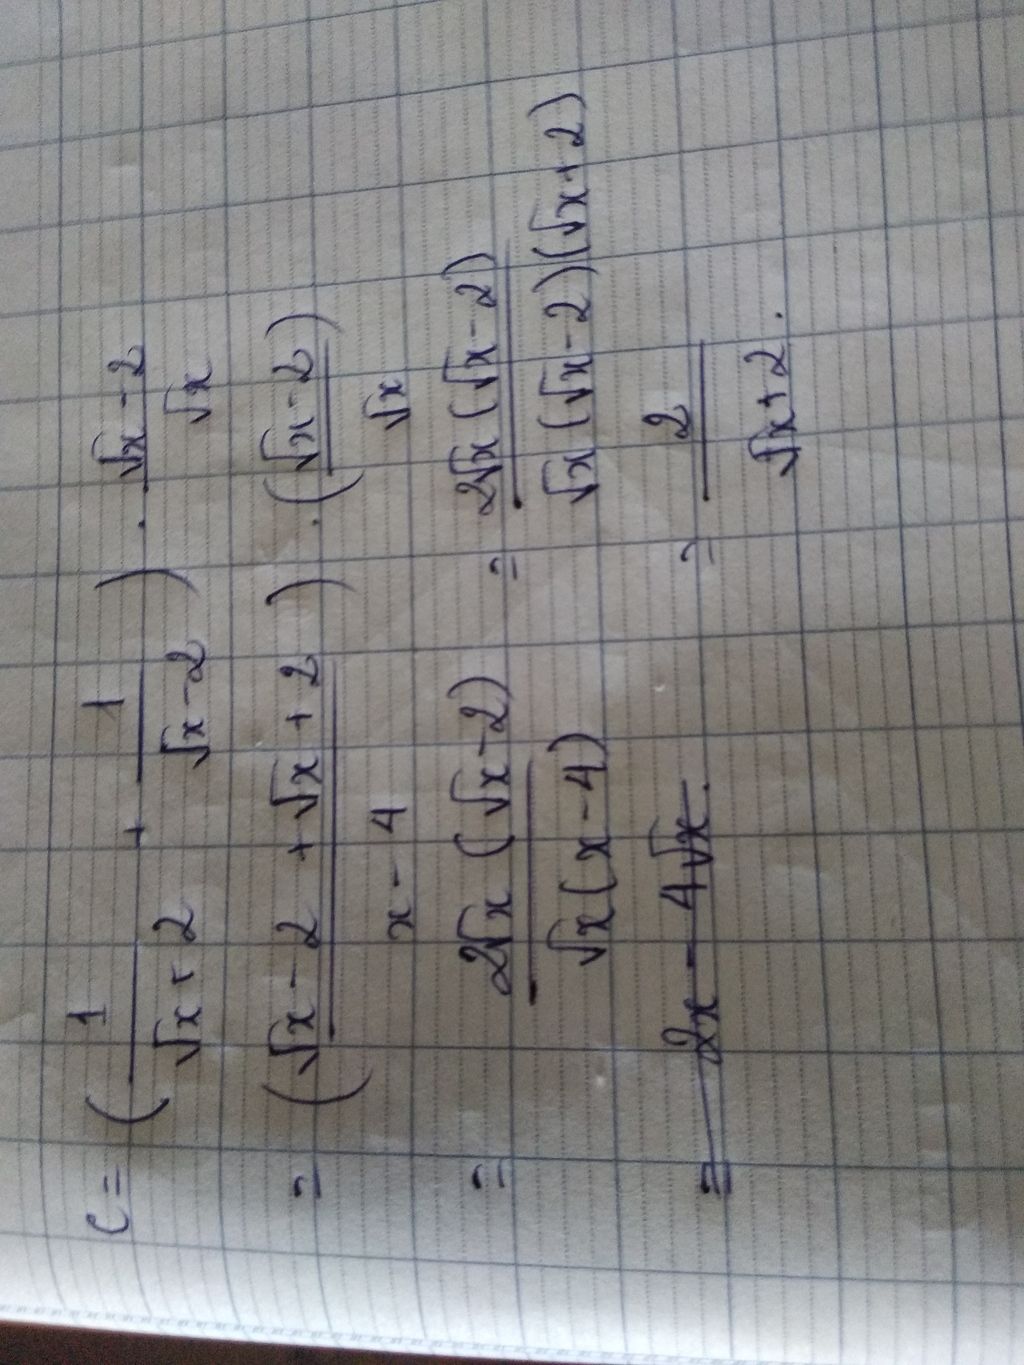 C = ( 1/(√x + 2) + 1/(√x - 2) ) . (√x - 2)/√x
= ( (√x - 2 + √x + 2)/(x - 4) ) . ( (√x - 2)/√x )
= 2√x (√x - 2)/(√x (x - 4)) = 2√x (√x - 2)/(√x (√x - 2)(√x + 2))
= 2x - 4√x.
= 2/(√x + 2).